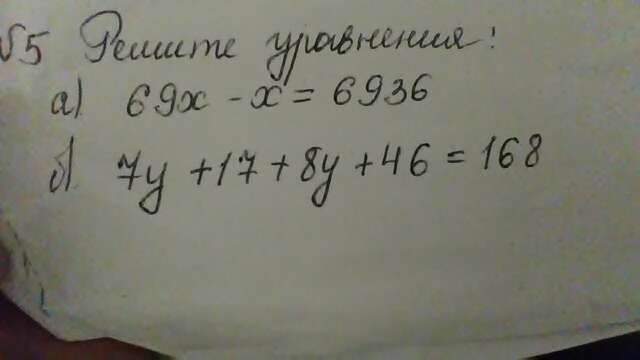 №5 Решите уравнения:
а) 69x - x = 6936
б) 7y + 17 + 8y + 46 = 168